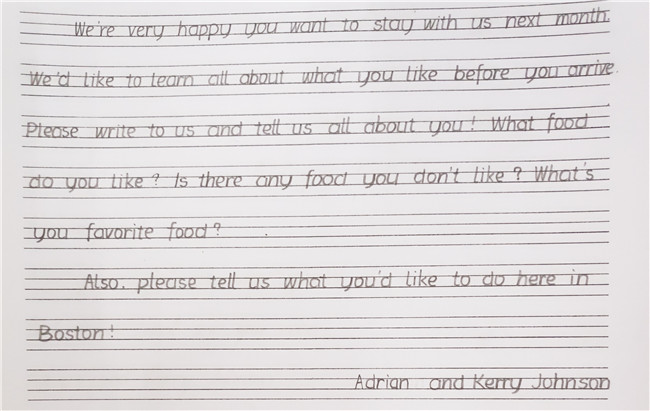 We're very happy you want to stay with us next month.
We'd like to learn all about what you like before you arrive.
Please write to us and tell us all about you! What food
do you like? Is there any food you don't like? What's
you favorite food?
Also. please tell us what you'd like to do here in
Boston!
Adrian and Kerry Johnson